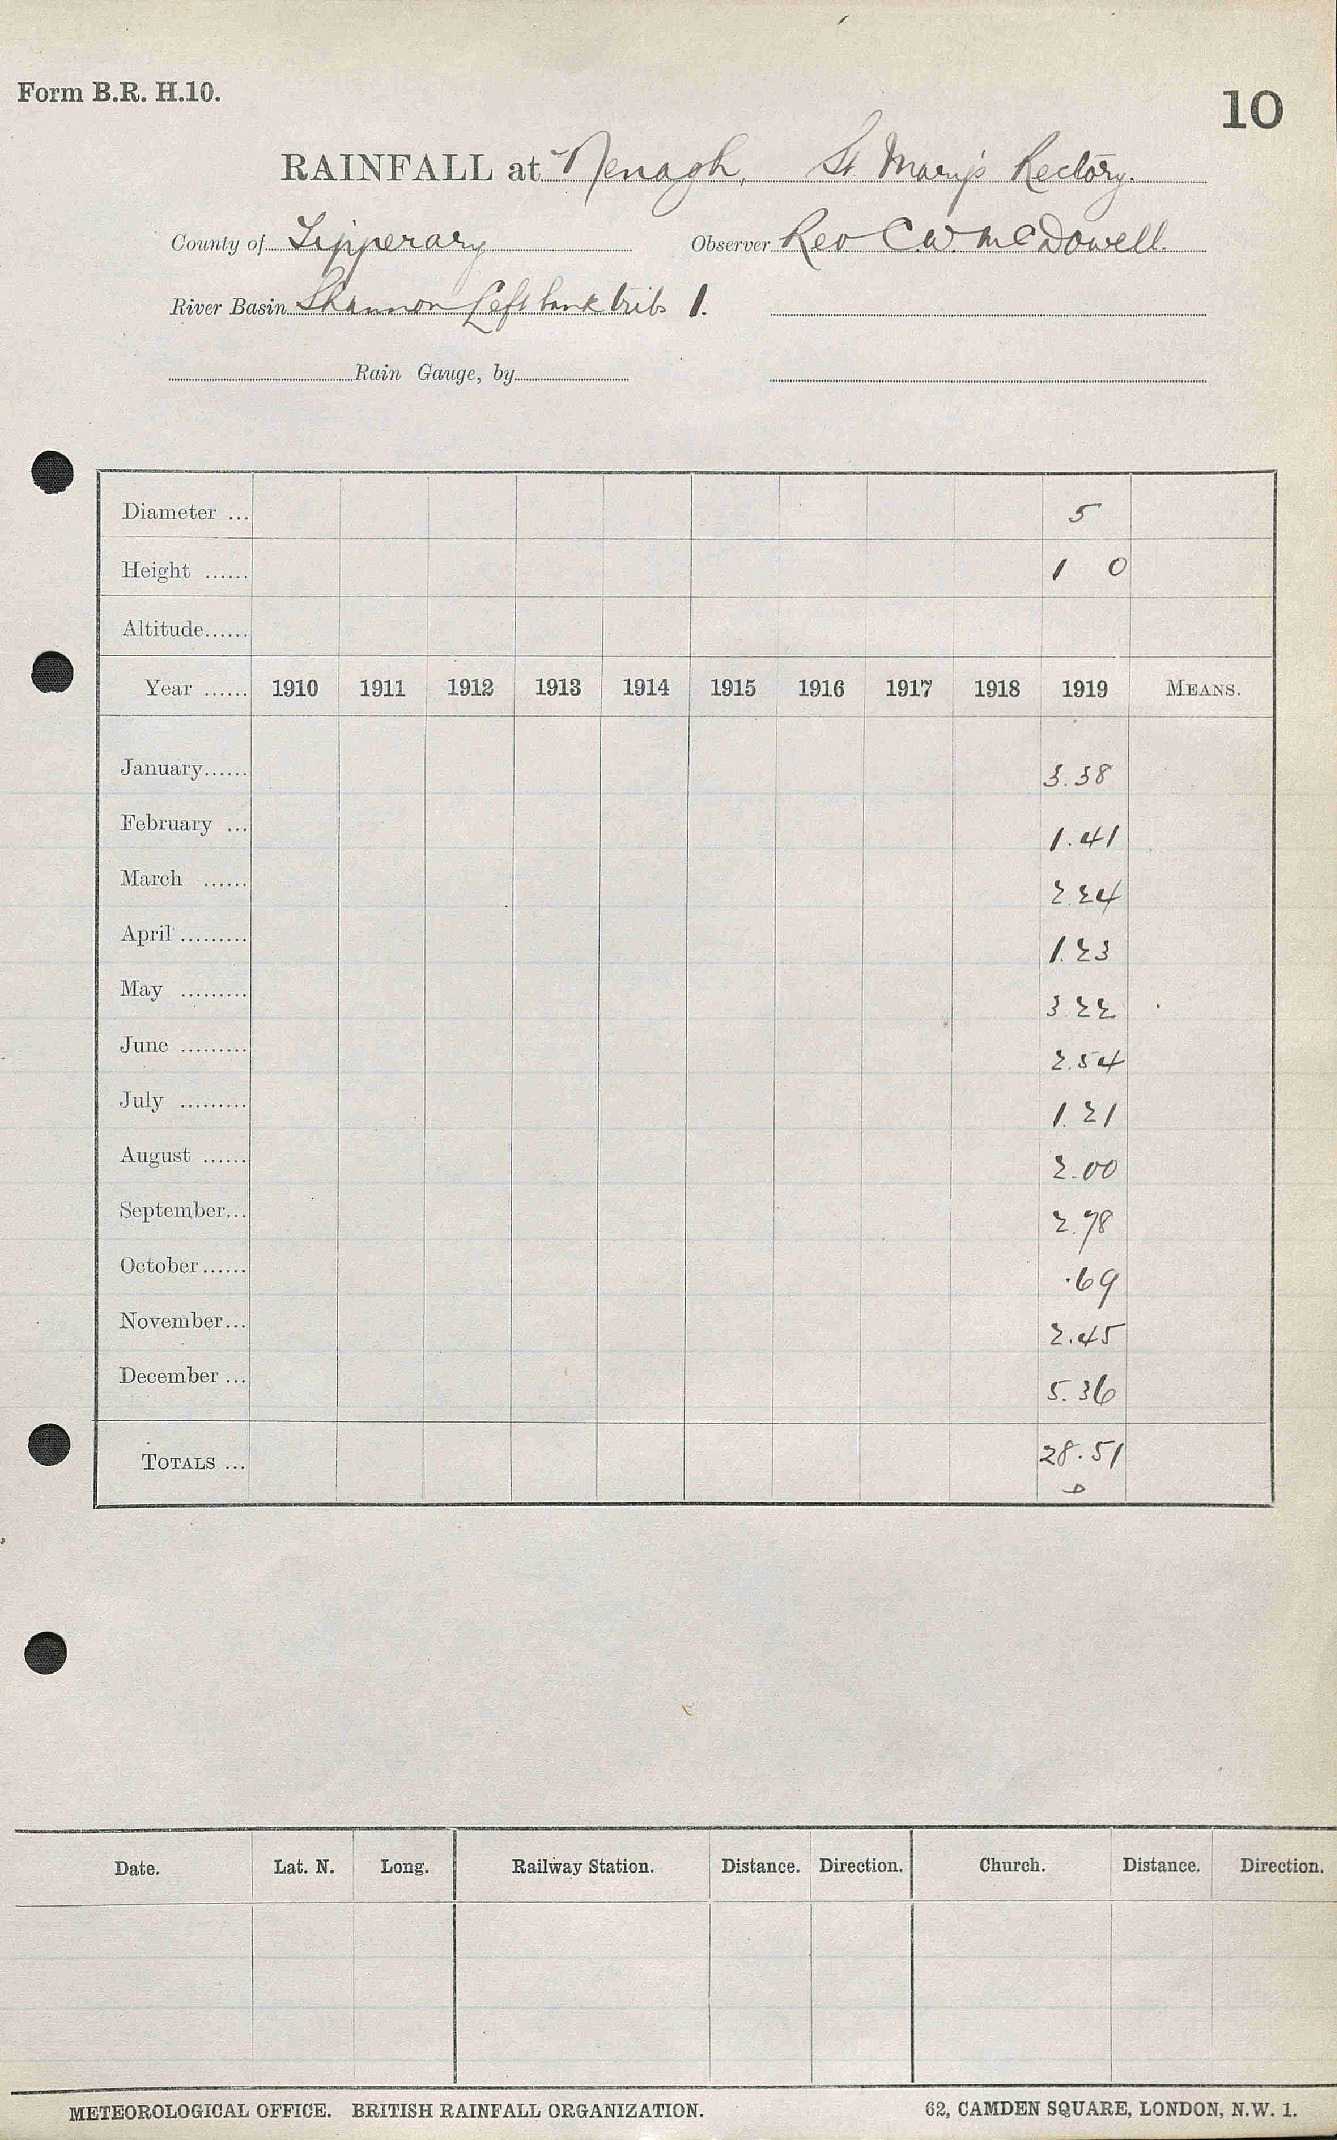 Form B.R. H.10.
10
RAINFALL at Nenagh, St. Mary's Rectory.
County of Tipperary Observer Rev C.W. McDowell.
River Basin Shannon Left bank tribs 1.
Rain Gauge, by
Diameter ... 5
Height ...... 1 0
Altitude......
Year ...... 1910 1911 1912 1913 1914 1915 1916 1917 1918 1919 MEANS.
January...... 3.38
February ... 1.41
March ...... 2.24
April ......... 1.23
May ......... 3.22
June ......... 2.54
July ......... 1.21
August ...... 2.00
September... 2.78
October...... .69
November... 2.45
December ... 5.36
TOTALS ... 28.51
Date. Lat. N. Long. Railway Station. Distance. Direction. Church. Distance. Direction.
METEOROLOGICAL OFFICE. BRITISH RAINFALL ORGANIZATION. 62, CAMDEN SQUARE, LONDON, N.W. 1.